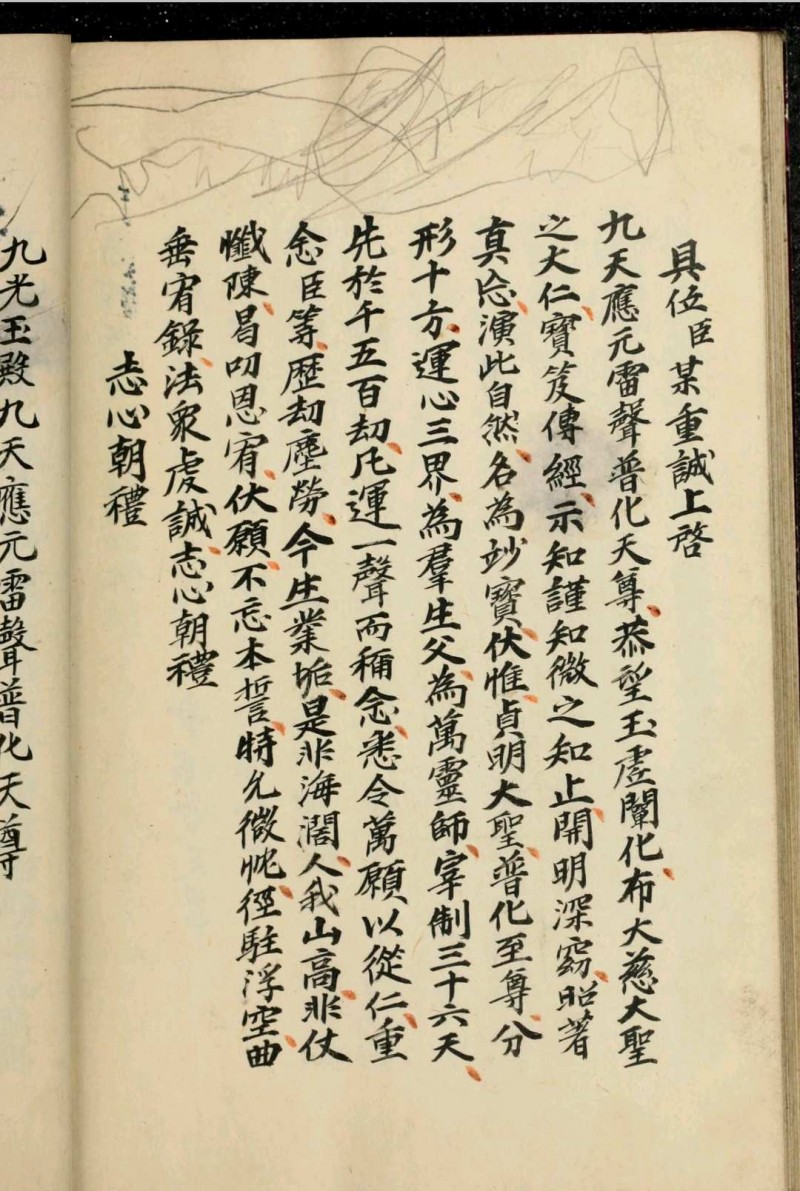 具位臣某重誠上啓
九天應元雷聲普化天尊、恭望玉虛闡化、布大慈大聖
之大仁、寶笈傳經、示知謹知微之知止、開明深窈、昭著
真忩、演此自然、名為妙寶、伏惟、貞明大聖、普化至尊、分
形十方、運心三界、為羣生父、為萬靈師、宰制三十六天、
先於千五百劫、凡運一聲而稱念、悉令萬願以從仁、重
念臣等、歷劫塵勞、今生業垢、是非海濶、人我山高、非仗
懺陳、曷叨恩宥、伏願、不忘本誓、特允微忱、徑駐浮空、曲
垂宥錄、法衆虔誠、志心朝禮
志心朝禮
九光玉殿九天應元雷聲普化天尊